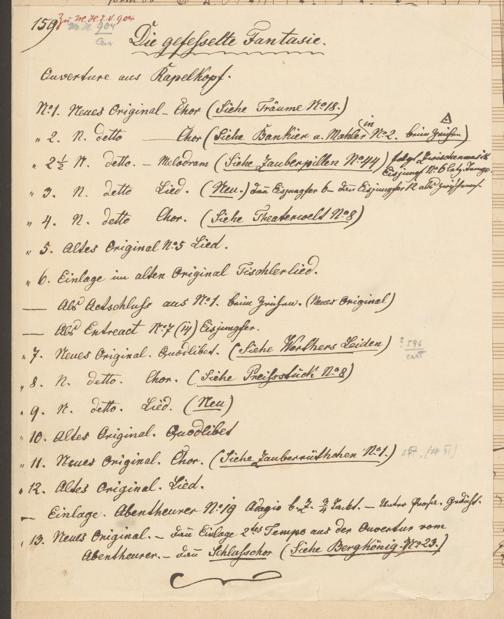 159
Die gefesselte Fantasie.
Ouverture aus Rapelkopf.
No 1. Neues Original - Chor (Siehe Träume No 18.)
" 2. N. detto Chor (Siehe Bankier u. Mahler in No 2.
" 2½ N. detto. - Melodram (Siehe Zauberpillen No 14)
" 3. N. detto Lied. (Neu.)
" 4. N. detto Chor. (Siehe Theaterwelt No 8)
" 5. Altes Original No 5 Lied.
" 6. Einlage im alten Original Tischlerlied.
— Als Actschluss aus No 1. (Neues Original)
— Als Entreact No 7 Eisjungfer.
" 7. Neues Original. Quodlibet. (Siehe Werthers Leiden)
" 8. N. detto. Chor. (Siehe Preissstück No 8)
" 9. N. detto. Lied. (Neu)
" 10. Altes Original. Quodlibet
" 11. Neues Original. Chor. (Siehe Zauberrüthchen No 1.)
" 12. Altes Original. Lied.
— Einlage. Abentheurer No 19 Adagio
" 13. Neues Original. - dann Einlage 2tes Tempo aus der Ouvertur vom
Abentheurer. - dann Schlusschor (Siehe Bergkönig No 23.)